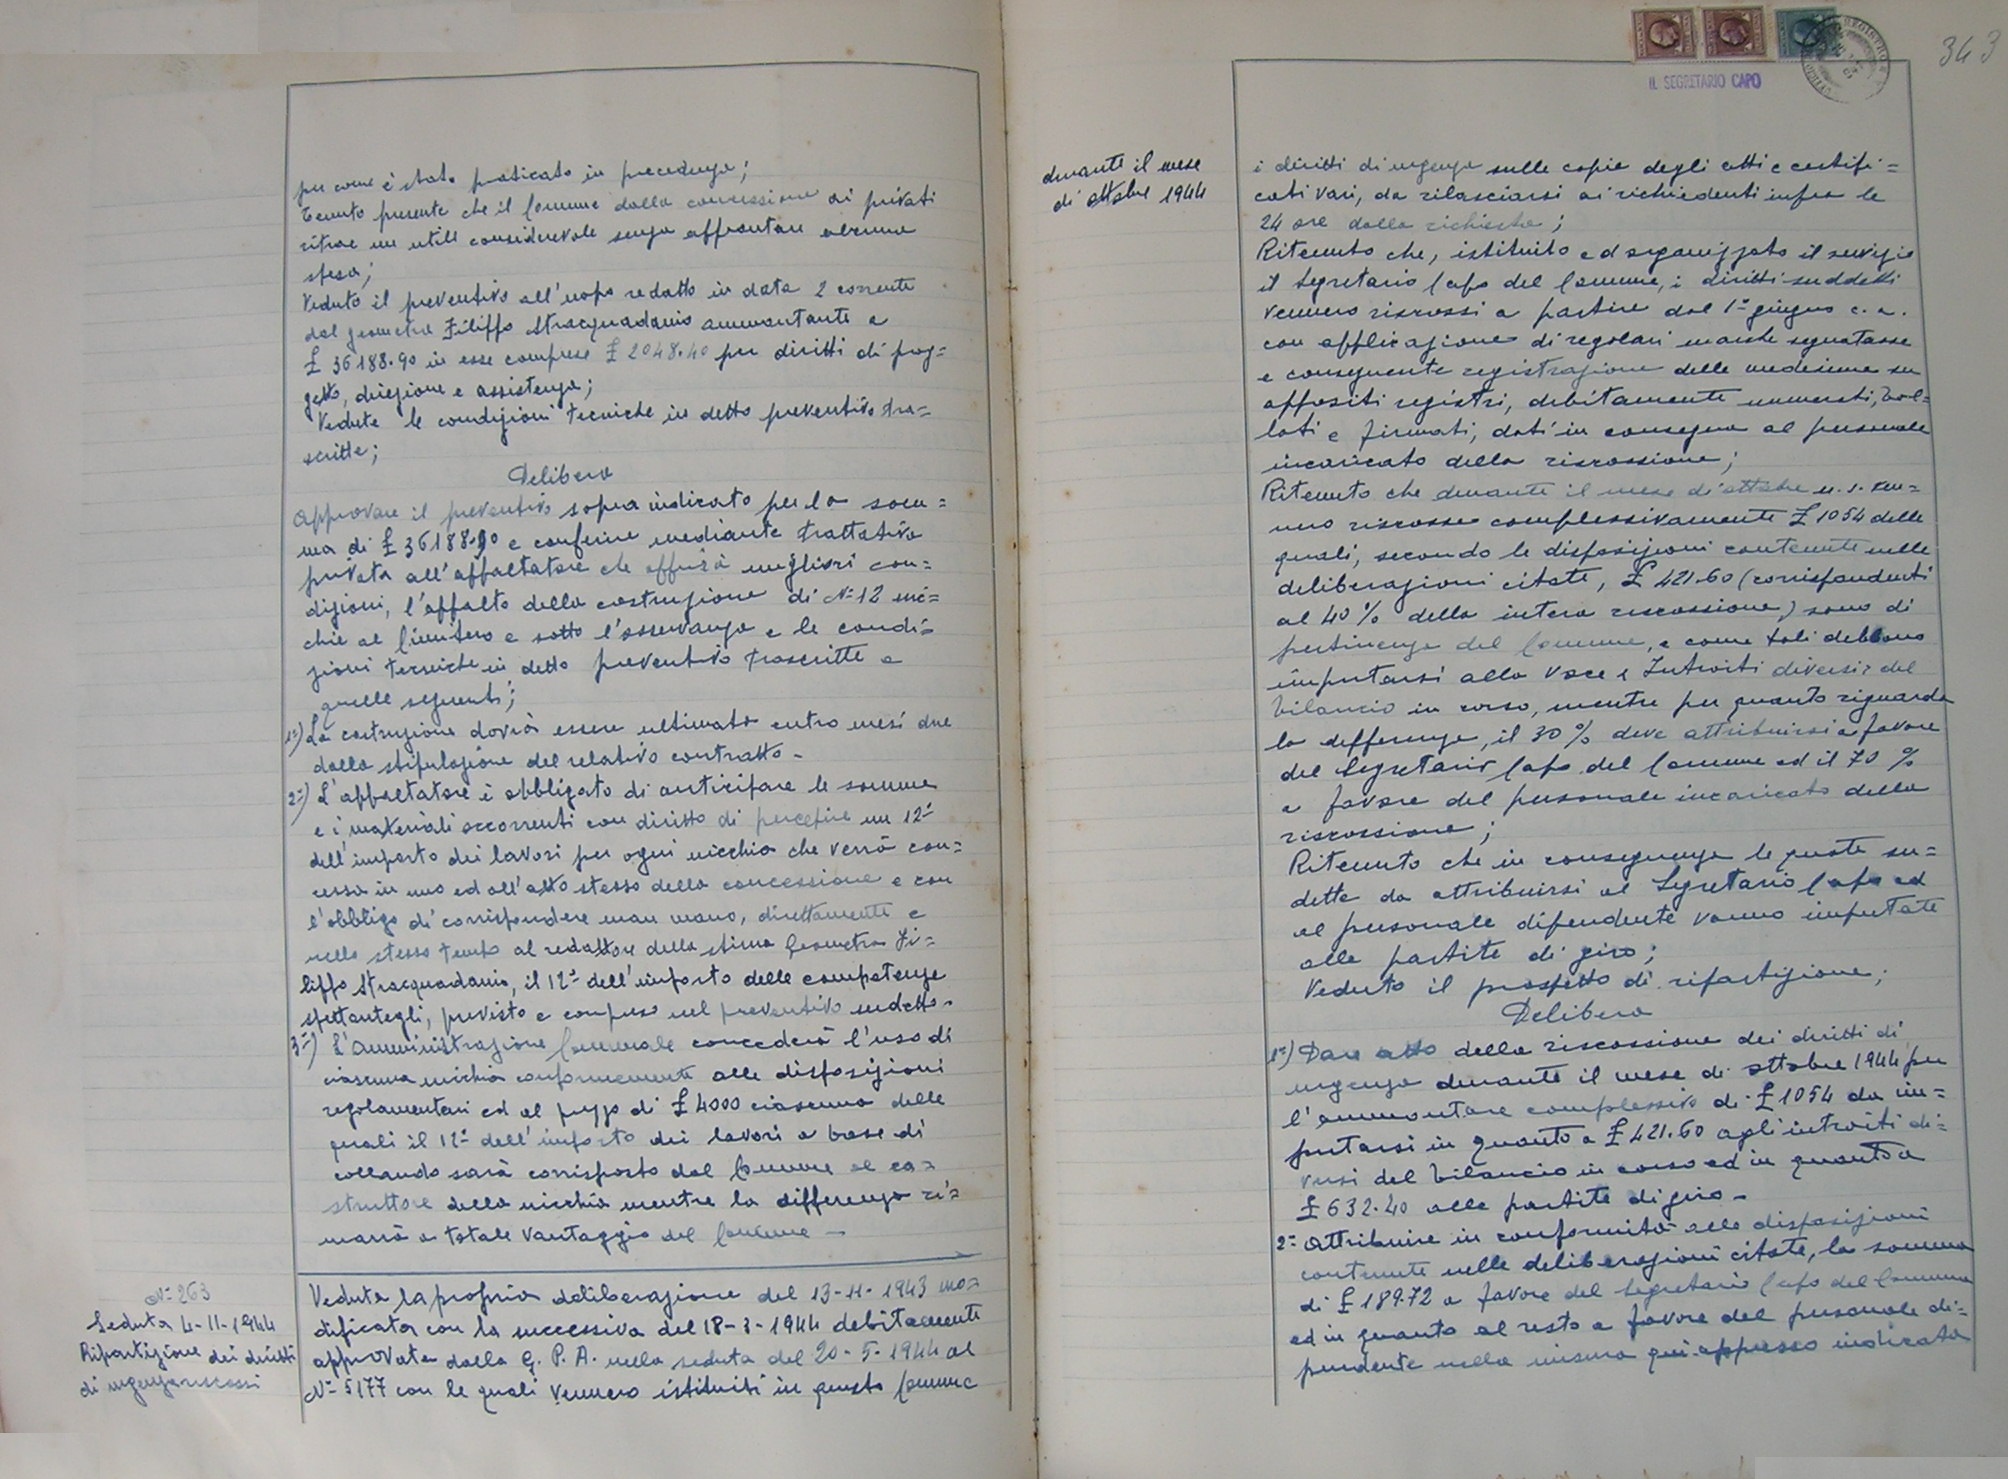 per come è stato praticato in precedenza;
Tenuto presente che il Comune dalla concessione ai privati
ritrae un utile considerevole senza affrontare alcuna
spesa;
Veduto il preventivo all'uopo redatto in data 2 corrente
dal geometra Filippo Stracquadanio ammontante a
£ 36188.90 in esse comprese £ 2048.40 per diritti di prog=
getto, direzione e assistenza;
Vedute le condizioni tecniche in detto preventivo tra=
scritte;
Delibera
Approvare il preventivo sopra indicato per la som=
ma di £ 36188.90 e conferire mediante trattativa
privata all'appaltatore che offrirà migliori con=
dizioni, l'appalto della costruzione di N° 12 nic=
chie al Cimitero e sotto l'osservanza e le condi=
zioni tecniche in detto preventivo trascritte e
quelle seguenti;
1°) La costruzione dovrà essere ultimata entro mesi due
dalla stipulazione del relativo contratto -
2°) L'appaltatore è obbligato di anticipare le somme
e i materiali occorrenti con diritto di percepire un 12°
dell'importo dei lavori per ogni nicchia che verrà con=
cessa in uso ed all'atto stesso della concessione e con
l'obbligo di corrispondere man mano, direttamente e
nello stesso tempo al redattore della stima Geometra Fi=
lippo Stracquadanio, il 12° dell'importo delle competenze
spettantegli, previsto e compreso nel preventivo sudetto.
3°) L'Amministrazione Comunale concederà l'uso di
ciascuna nicchia conformemente alle disposizioni
regolamentari ed al prezzo di £ 4000 ciascuna delle
quali il 12° dell'importo dei lavori a base di
collaudo sarà corrisposto dal Comune al co=
struttore della nicchia mentre la differenza ri=
marrà a totale vantaggio del Comune -
N° 263
Seduta 4-11-1944
Ripartizione dei diritti
di urgenza riscossi
Veduta la propria deliberazione del 13-11-1943 mo=
dificata con la successiva del 18-3-1944 debitamente
approvata dalla G. P. A. nella seduta del 20-5-1944 al
N° 5177 con le quali vennero istituiti in questo Comune
343
IL SEGRETARIO CAPO
durante il mese
di ottobre 1944
i diritti di urgenza sulle copie degli atti e certifi=
cati vari, da rilasciarsi ai richiedenti infra le
24 ore dalla richiesta;
Ritenuto che, istituito ed organizzato il servizio
il Segretario Capo del Comune, i diritti suddetti
vennero riscossi a partire dal 1° giugno c. a.
con applicazione di regolari marche segnatasse
e conseguente registrazione delle medesime su
appositi registri, debitamente numerati, bol=
lati e firmati, dati in consegna al personale
incaricato della riscossione;
Ritenuto che durante il mese di ottobre u. s. ven=
nero riscosse complessivamente £ 1054 delle
quali, secondo le disposizioni contenute nelle
deliberazioni citate, £ 421.60 (corrispondenti
al 40% della intera riscossione) sono di
pertinenza del Comune, e come tali debbono
imputarsi alla voce "Introiti diversi" del
bilancio in corso, mentre per quanto riguarda
la differenza, il 30% deve attribuirsi a favore
del Segretario Capo del Comune ed il 70 %
a favore del personale incaricato della
riscossione;
Ritenuto che in conseguenza le quote su=
dette da attribuirsi al Segretario Capo ed
al personale dipendente vanno imputate
alle partite di giro;
Veduto il prospetto di ripartizione;
Delibera
1°) Dare atto della riscossione dei diritti di
urgenza durante il mese di ottobre 1944 per
l'ammontare complessivo di £ 1054 da im=
putarsi in quanto a £ 421.60 agli introiti di=
versi del bilancio in corso ed in quanto a
£ 632.40 alle partite di giro -
2° Attribuire in conformità alle disposizioni
contenute nelle deliberazioni citate, la somma
di £ 189.72 a favore del Segretario Capo del Comune
ed in quanto al resto a favore del personale di=
pendente nella misura qui appresso indicata